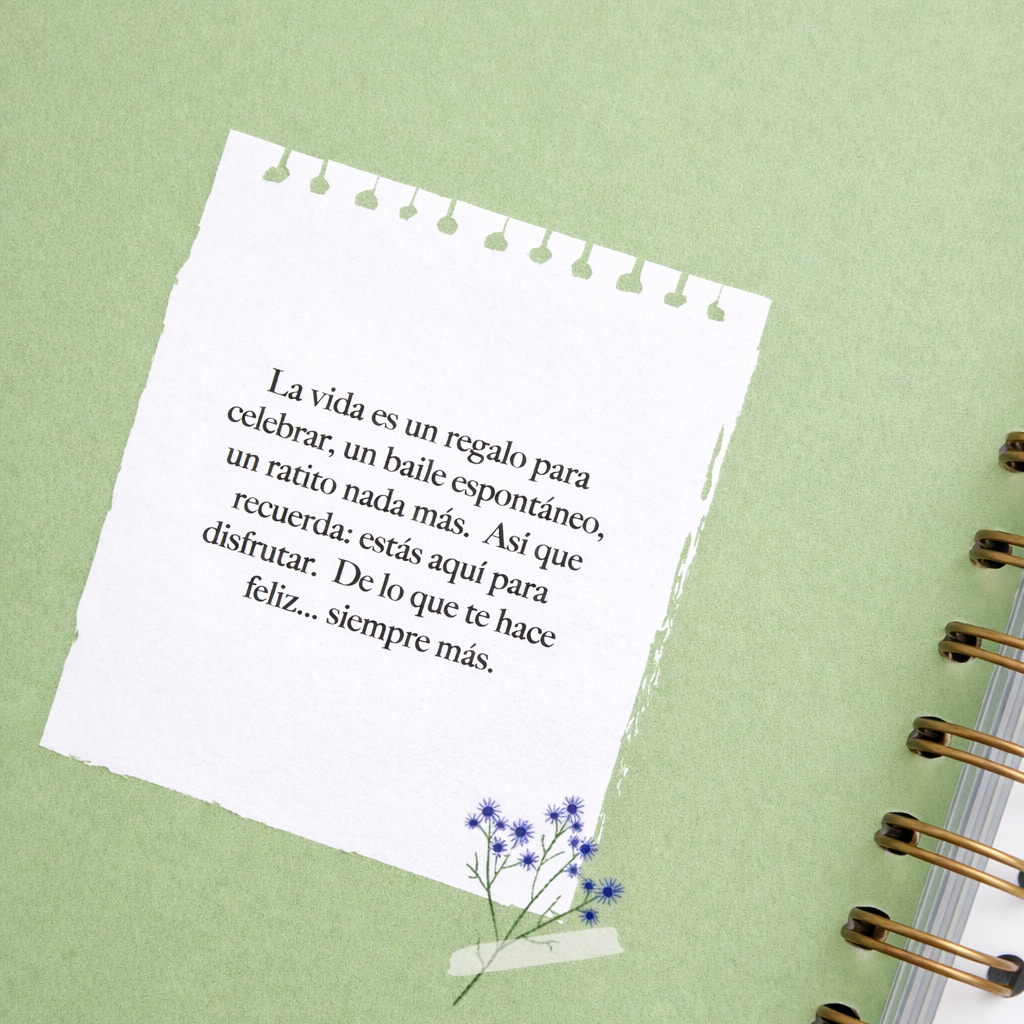 La vida es un regalo para
celebrar, un baile espontáneo,
un ratito nada más.  Asi que
recuerda: estás aquí para
disfrutar.  De lo que te hace
feliz... siempre más.